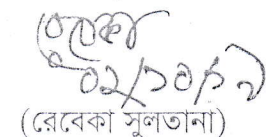 রেবেকা
০২/১০/১৭
(রেবেকা সুলতানা)